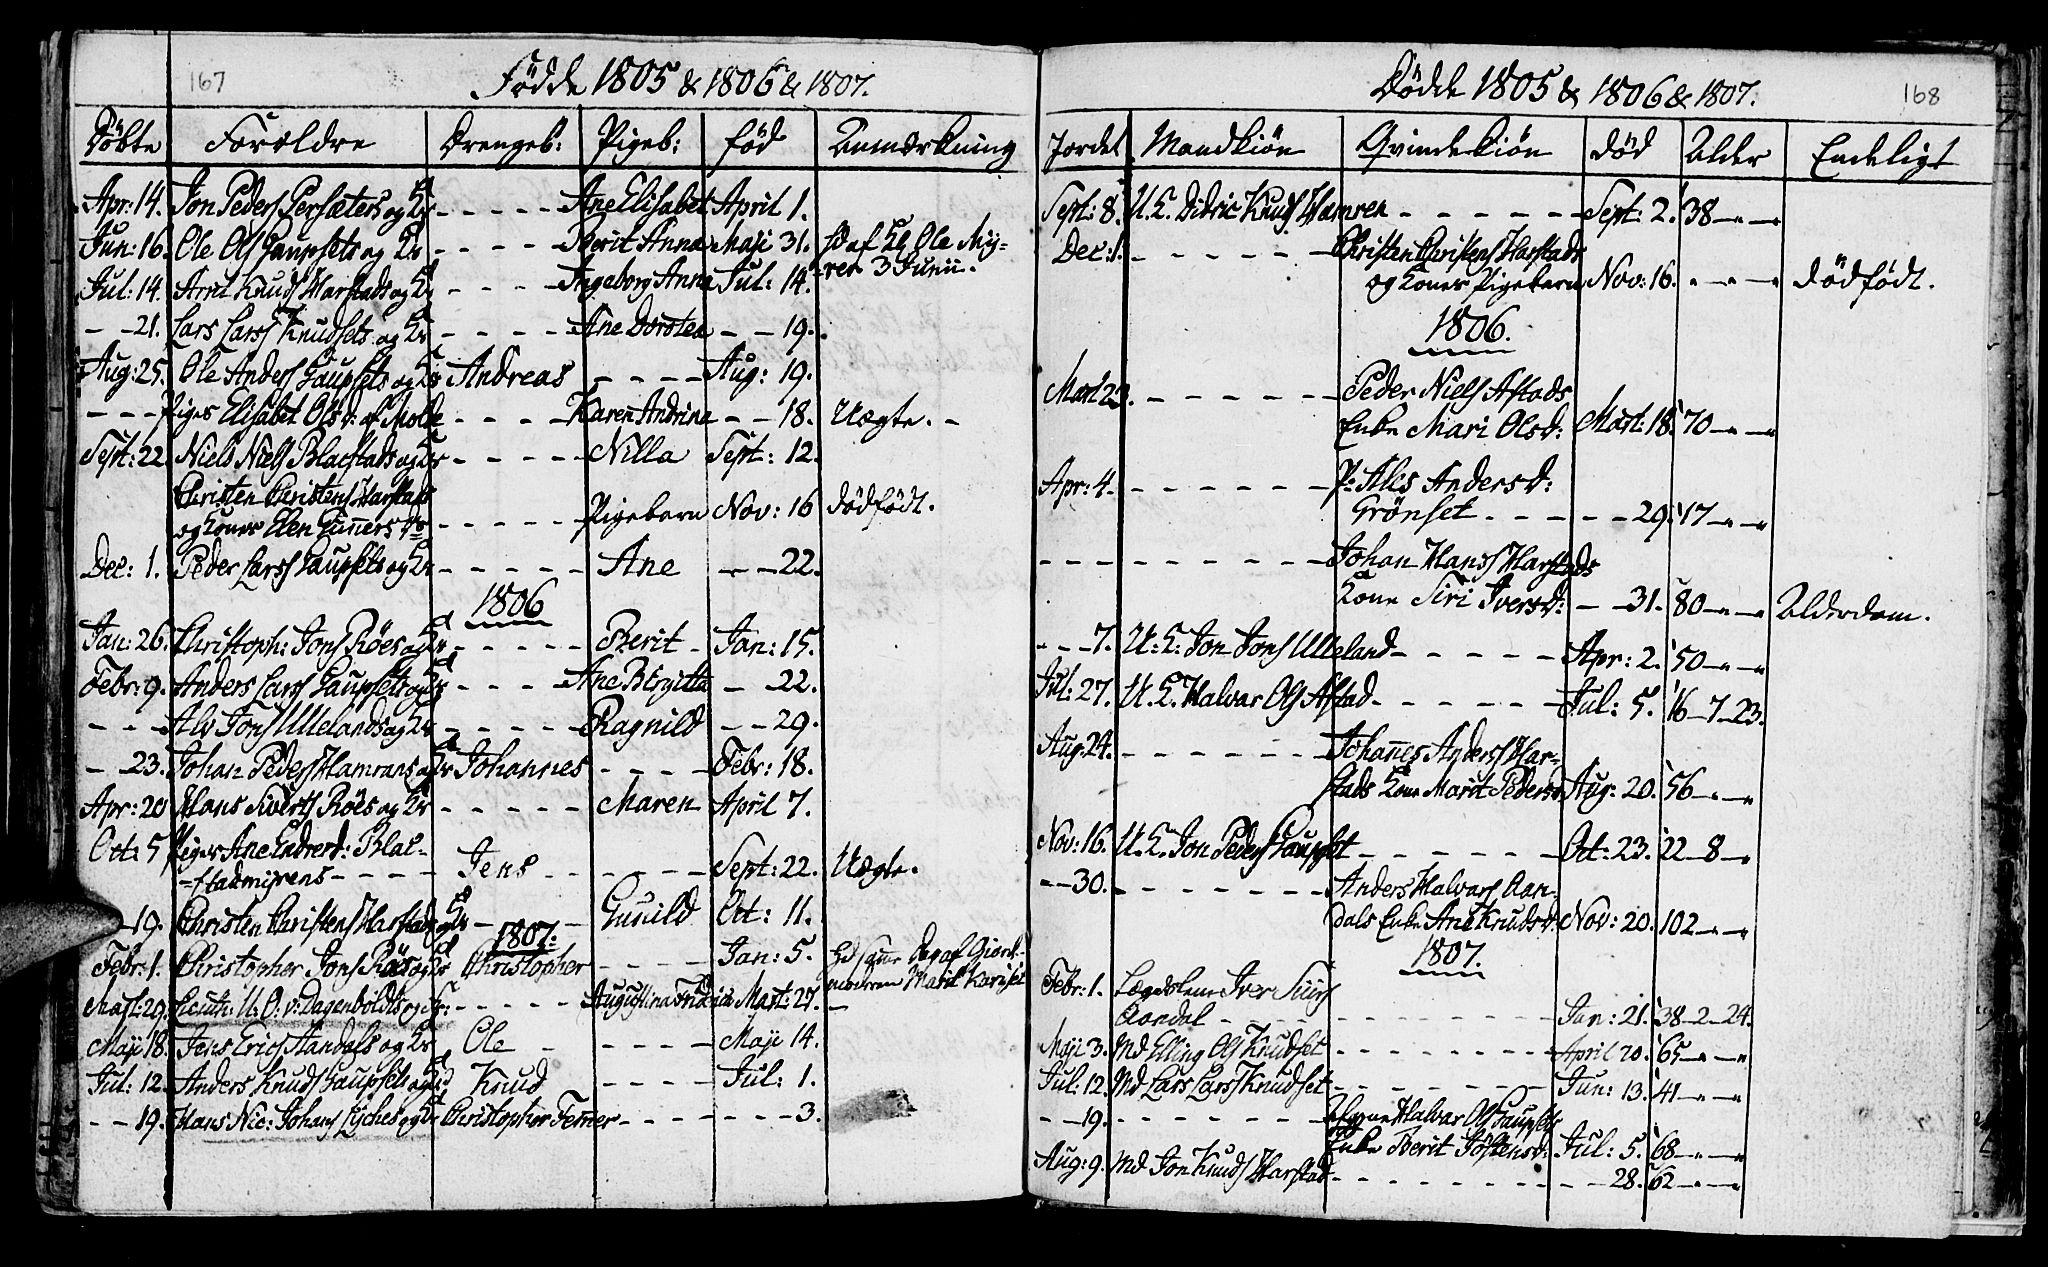 167
Födde 1805 & 1806 & 1807.
Döbte Forældre Drengeb: Pigeb: född Anmærkning
Apr: 14. Jon Peders Persæters og - - - - - Ane Elisabet April 1.
Jun: 16. Ole Ols Gaupsets og - - - - Berit Anna Maji 31. af Ole My-
Jul: 14. Arnt Knuds Harstads og - - - - Ingeborg Anna Jul: 14. ren 3 Junii.
- - 21. Lars Lars Knudsets og - - - - Ane Dorotea - - 19.
Aug: 25. Ole Anders Gaupsets og Andreas - - - - Aug: 19.
- - - Piges Elisabet Olsd: af Molde - - - - Karen Andrina - - 18. Uægte. -
Sept: 22 Niels Niels Blacstads og - - - - Nilla Sept: 12.
Christen Christens Harstads
og Kones Elen Gunnersd: - - - - - Pigebarn Nov: 16 dödfödt.
Dec: 1. Peder Lars Gaupsets og - - - - - Ane - - 22.
1806
Jan: 26. Christoph: Jons Röes og - - - - - Berit - Jan: 15.
Febr: 9. Anders Lars Gaupsets og - - - - Ane Birgitta - 22.
- - - Alv Jons Ullelands og - - - - - Ragnild - - 29.
- 23. Johan Peders Hamrans og Johannes - - - - Febr: 18.
Apr: 20 Hans Siverts Röes og - - - - - Maren April 7.
Oct: 5 Piges Ane Endresd: Blac-
=stadmyrens - - - - Jens - - - - - Sept: 22. Uægte.
- 19. Christen Christens Harstads - - Gunild Oct: 11.
1807.
Febr: 1. Christopher Jons Röes og Christopher - - - - Jan: 5. af Giord-
modren Marit Kariset
Mart: 29. Lieutn: U. O. v: Dagenboldts og - - - - - Augustina Mart: 27. -
Maji 18. Jens Erics Aandals og Ole - - - - - Maji 14.
Jul: 12. Anders Knuds Gaupsets og Knud - - - - Jul: 1.
- - 19. Hans Nic: Johans Lyches og Christopher Ferner - - - - - - 3.
168
Dödde 1805 & 1806 & 1807.
Jordet Mandkiön Qvindekiön död Alder Endeligt
Sept: 8. U. K. Didric Knuds Hamren - - - - - - Sept: 2. 38 - " - "
Dec: 1. - - - - - - Christen Christens Harstads
og Kones Pigebarn Nov: 16. " - " - " dödfödt.
1806.
Mart 23. - - - - - - Peder Niels Astads
Enke Mari Olsd: Mart: 18. 70 - " - "
Apr: 4. - - - - - - P: Ales Andersd:
Grönset - - - - - 29. 17 - " - "
- - - - - - - - - Johan Hans Harstads
Kone Siri Iversd: - - 31. 80 - " - " Alderdom.
- - 7. U: K: Jon Jons Ulleland - - - - - Apr: 2. 50 - " - "
Jul: 27. U. K. Halvar Ols Astad - - - - - - Jul: 5. 16 - 7 - 23.
Aug: 24. - - - - - - Johannes Anders Har-
stads Kone Marit Pedersd. Aug: 20. 56 - " - "
Nov: 16. U. K. Jon Peders Gaupset - - - - - - Oct: 23. 22 - 8 - "
- - 30. - - - - - - - Anders Halvars Aan-
dals Enke Ane Knudsd. Nov: 20. 102 - " - "
1807.
Febr: 1. Lægdslem Iver Siurs
Aandal - - - - - - - - - Jan: 21. 38 - 2 - 24.
Maji 3. Md Elling Ols Knudset - - - - - - - April 20. 65 - " - "
Jul: 12. Md Lars Lars Knudset - - - - - - - Jun: 13. 41 - " - "
- - 19. - - - - - - - Halvar Ols Gaupsets
Enke Berit Jöstensd: Jul: 5. 68 - " - "
Aug: 9. Md Jon Knuds Harstad - - - - - - - - - - 28. 62 - " - "